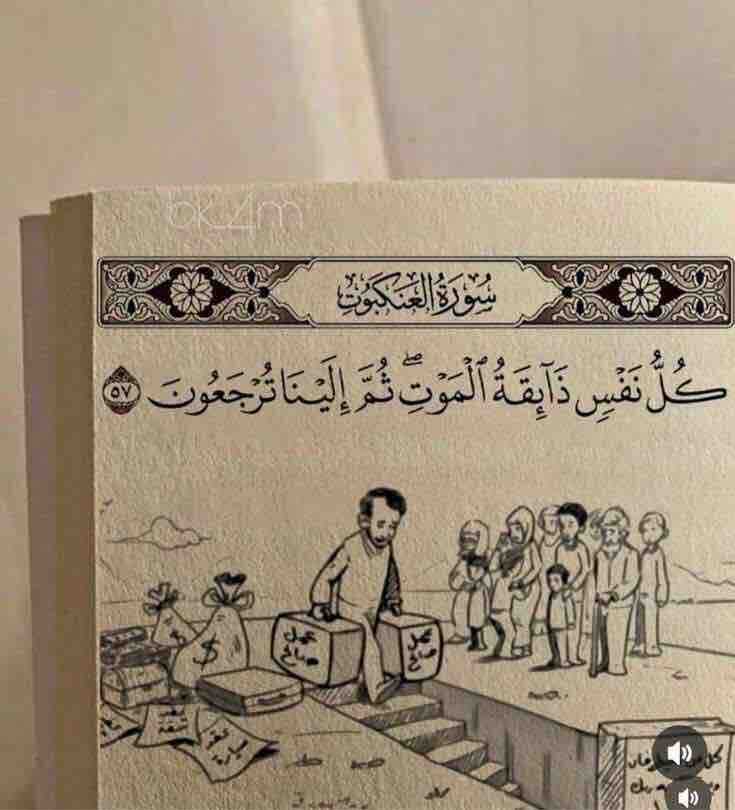 bk_4m
سُورَةُ العَنكَبُوتِ
كُلُّ نَفْسٍ ذَآئِقَةُ ٱلْمَوْتِ ۖ ثُمَّ إِلَيْنَا تُرْجَعُونَ ٥٧
عمل
صالح
عمل
صالح
$
كل من عليها فان